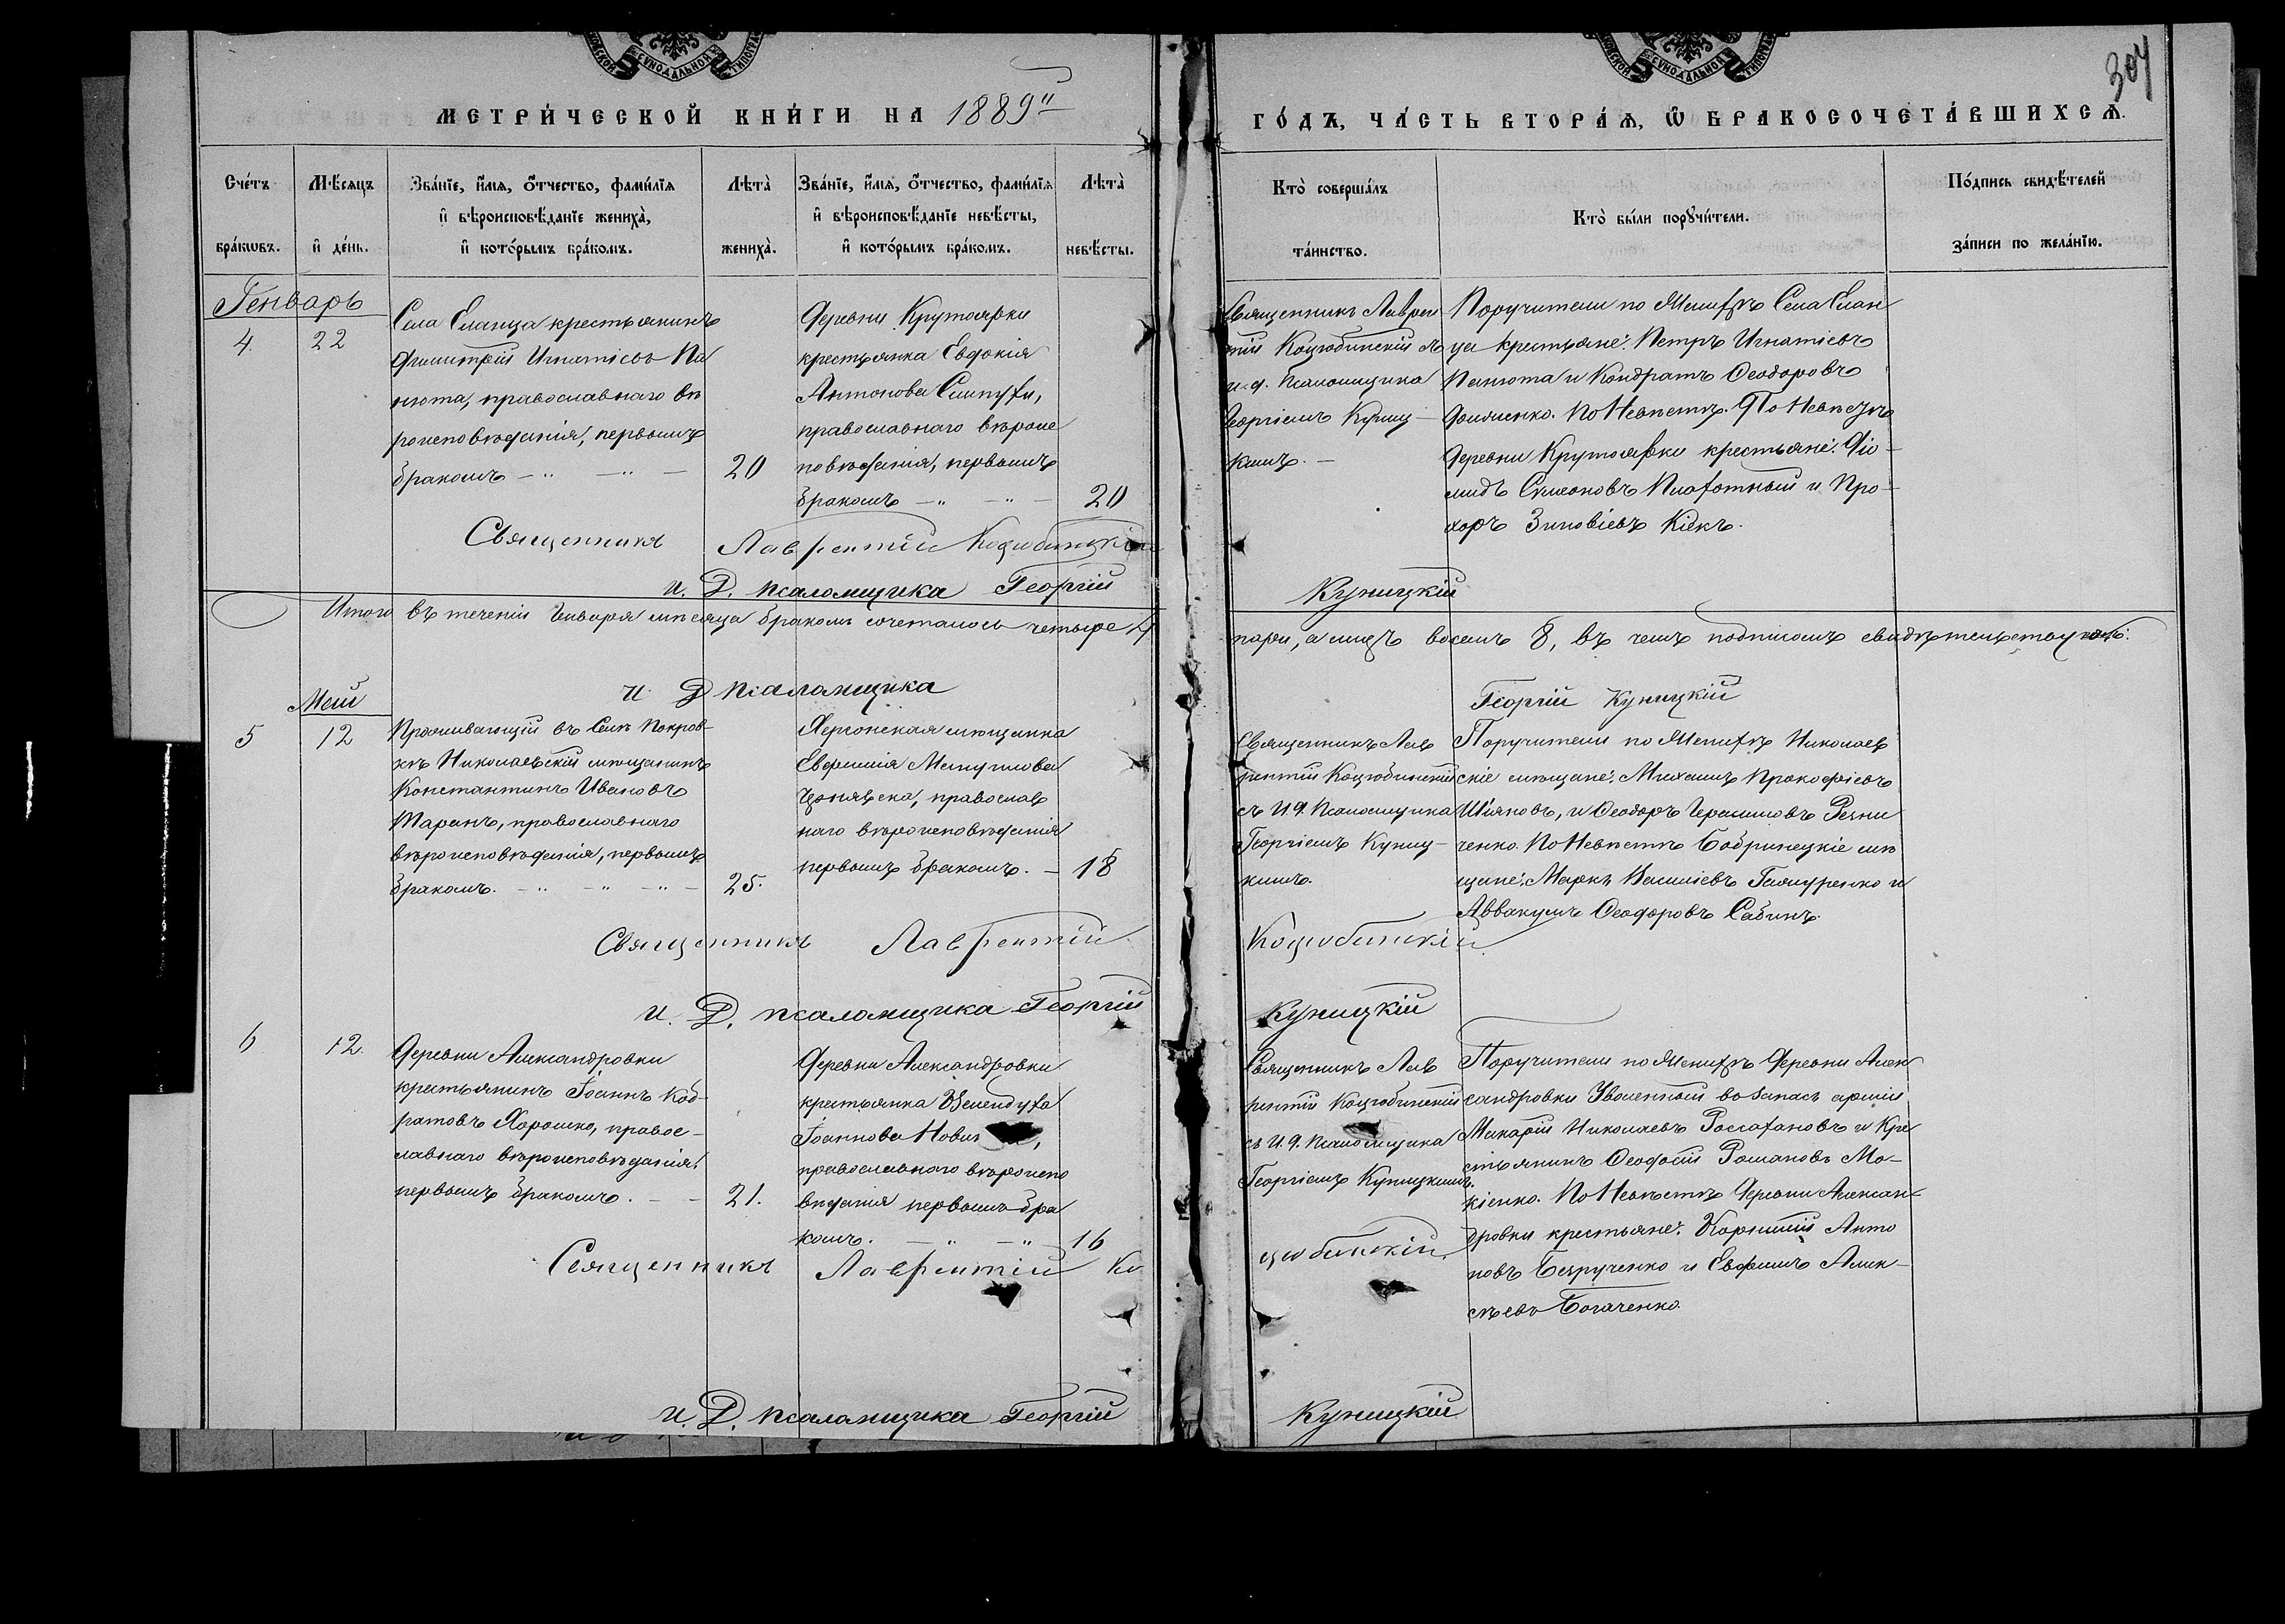 МЕТРИ́ЧЕСКОЙ КНИ́ГИ НА 1889й
ГО́ДЪ, ЧА́СТЬ ВТОРА́Ѧ, Ѡ БРАКОСОЧЕТА́ВШИХСѦ.
304
Сче́тъ бра́кѡвъ.
Мѣ́сяцъ и҆ де́нь.
Зва́нїе, и҆́мѧ, ѻ҆́тчество, фами́лїѧ
и҆ вѣроисповѣ́данїе жениха̀,
и҆ кото́рымъ бра́комъ.
Лѣта̀ жениха̀.
Зва́нїе, и҆́мѧ, ѻ҆́тчество, фами́лїѧ
и҆ вѣроисповѣ́данїе невѣ́сты,
и҆ кото́рымъ бра́комъ.
Лѣта̀ невѣ́сты.
Кто̀ соверша́лъ та́инство.
Кто̀ бы́ли порꙋчи́тели.
По́дпись свидѣ́телей за́писи по жела́нїю.
Генварь
4.
22
Села Еланца крестьянинъ
Димитрій Игнатіевъ Па
нюта, православнаго вѣ
роисповѣданія, первымъ
бракомъ
20
Деревни Крутоярки
крестьянка Евдокія
Антонова
православнаго вѣроис
повѣданія, первымъ
бракомъ
20
Священникъ Лаврен
тій Коцюбинскій съ
и. д. Псаломщика
Георгіемъ Куниц-
кимъ.
Поручители по Женихѣ Села Елан
ца крестьяне: Петръ Игнатіевъ
Панюта и Кондратъ Ѳеодоровъ
По Невѣстѣ. По Невѣстѣ
Деревни Крутоярки крестьяне: Діо-
мидъ Симоновъ Плахотный и Про-
хоръ Зиновіевъ
Священникъ Лаврентій Коцюбинскій
И. Д. псаломщика Георгій Куницкій
Итого въ теченіи Генваря мѣсяца бракомъ сочеталось четыре 4
пары, а лицъ восемь 8, въ чемъ подписомъ свидѣтельствуемъ:
И. Д псаломщика Георгій Куницкій
Май
5
12
Проживающій въ Селѣ Покров-
кѣ Николаевскій мѣщанинъ
Константинъ Ивановъ
Таранъ, православнаго
вѣроисповѣданія, первымъ
бракомъ.
25.
Херсонская мѣщанка
Евфимія
православ
наго вѣроисповѣданія
первымъ бракомъ.
18
Священникъ Лав
рентій Коцюбинскій
съ И. Д. Псаломщика
Георгіемъ Куниц-
кимъ.
Поручители по Женихѣ Николаев
скіе мѣщане: Михаилъ Прокофіевъ
и Ѳеодоръ Герасимовъ
По Невѣстѣ Бобринецкіе мѣ
щане: Маркъ Василіевъ и
Аввакумъ Ѳеодоровъ Сабинъ.
Священникъ Лаврентій Коцюбинскій
И. Д. псаломщика Георгій Куницкій
6
12.
Деревни Александровки
крестьянинъ Іоаннъ Код-
ратовъ Хорошко, правос-
лавнаго вѣроисповѣданія
первымъ бракомъ.
21.
Деревни Александровки
крестьянка
Іоаннова
православнаго вѣроиспо
вѣданія первымъ бра
комъ.
16
Священникъ Лав
рентій Коцюбинскій
съ И. Д. Псаломщика
Георгіемъ Куницкимъ.
Поручители по Женихѣ Деревни Алек
сандровки Уволенный въ запасъ арміи
Макарій Николаевъ и Кре
стьянинъ Ѳеодосій Романовъ Мо-
кіенко. По Невѣстѣ Деревни Алексан-
дровки крестьяне: Корнилій Анто
новъ Безрученко и Евфимъ Алек-
сѣевъ Богаченко.
Священникъ Лаврентій Коцюбинскій
И. Д. псаломщика Георгій Куницкій